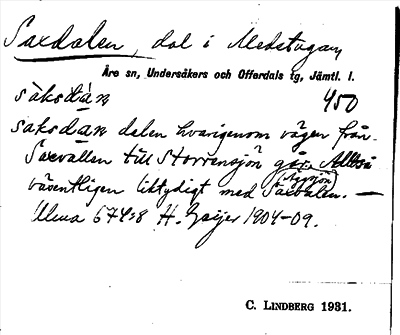 Saxdalen, dal i Medstugan,
Åre sn, Undersåkers och Offerdals tg, Jämtl. l.
sàksdàn 450
saksdàn dalen hvarigenom vägen från
Saxvallen till Storrensjön går. Alltså
väsentligen liktydigt med Saxdalen. —
Ulma 674:8 H. Geijer 1904-09.
C. LINDBERG 1931.